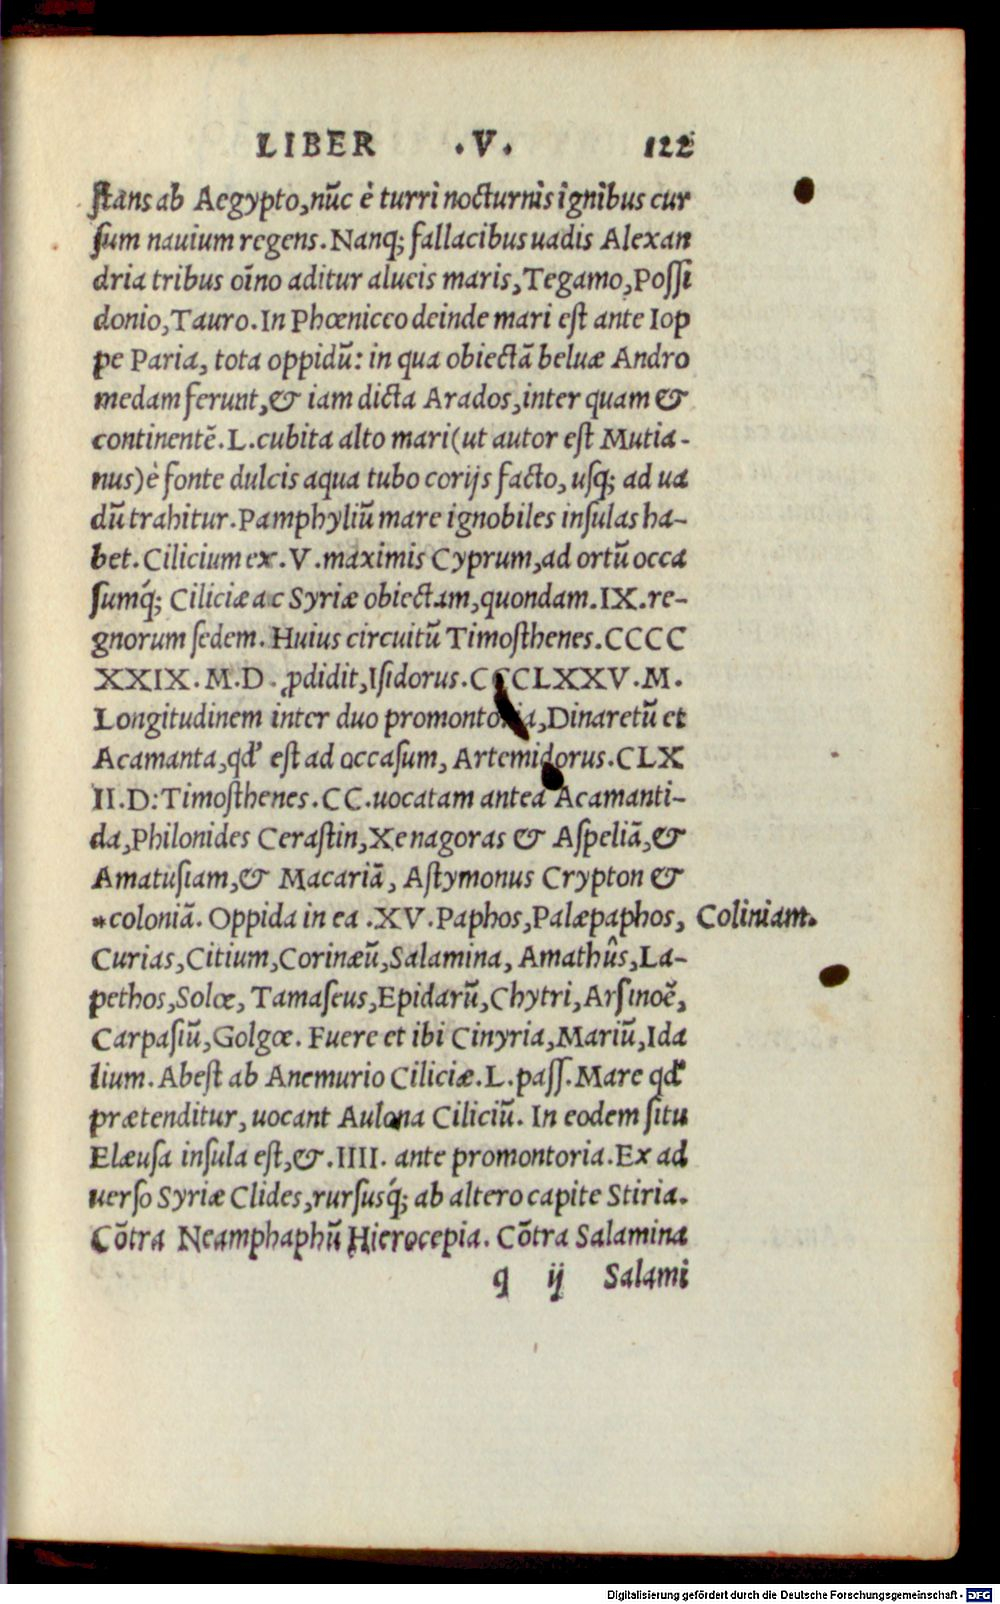 LIBER .V. 122
stans ab Aegypto, nũc è turri nocturnis ignibus cur
sum nauium regens. Nanq; fallacibus uadis Alexan
dria tribus oĩno aditur alueis maris, Tegamo, Possi
donio, Tauro. In Phœnicco deinde mari est ante Iop
pe Paria, tota oppidũ: in qua obiectã beluæ Andro
medam ferunt, & iam dicta Arados, inter quam &
continentẽ .L. cubita alto mari (ut autor est Mutia-
nus) è fonte dulcis aqua tubo corijs facto, usq; ad ua
dũ trahitur. Pamphyliũ mare ignobiles insulas ha-
bet. Cilicium ex .V. maximis Cyprum, ad ortũ occa
sumq́; Ciliciæ ac Syriæ obiectam, quondam .IX. re-
gnorum sedem. Huius circuitũ Timosthenes .CCCC
XXIX. M.D. ꝓdidit, Isidorus .CCCLXXV.M.
Longitudinem inter duo promontoria, Dinaretũ et
Acamanta, qđ est ad occasum, Artemidorus .CLX
II.D: Timosthenes .CC. uocatam antea Acamanti-
da, Philonides Cerastin, Xenagoras & Aspeliã, &
Amatusiam, & Macariã, Astymonus Crypton &
*coloniã. Oppida in ea .XV. Paphos, Palæpaphos, Coliniam.
Curias, Citium, Corinæũ, Salamina, Amathûs, La-
pethos, Solœ, Tamaseus, Epidarũ, Chytri, Arsinoẽ,
Carpasiũ, Golgœ. Fuere et ibi Cinyria, Mariũ, Ida
lium. Abest ab Anemurio Ciliciæ .L. pass. Mare qđ
prætenditur, uocant Aulona Ciliciũ. In eodem situ
Elæusa insula est, & .IIII. ante promontoria. Ex ad
uerso Syriæ Clides, rursusq́; ab altero capite Stiria.
Cõtra Neamphaphũ Hierocepia. Cõtra Salamina
q ij Salami
Digitalisierung gefördert durch die Deutsche Forschungsgemeinschaft - DFG